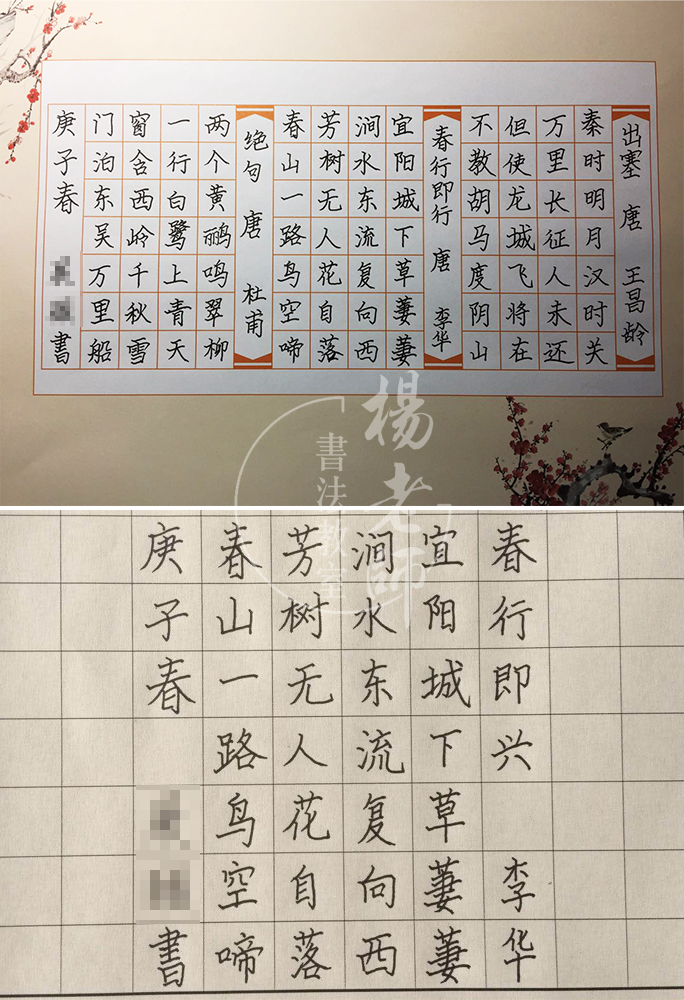 出塞 唐 王昌龄
秦时明月汉时关
万里长征人未还
但使龙城飞将在
不教胡马度阴山
春行即行 唐 李华
宜阳城下草萋萋
涧水东流复向西
芳树无人花自落
春山一路鸟空啼
绝句 唐 杜甫
两个黄鹂鸣翠柳
一行白鹭上青天
窗含西岭千秋雪
门泊东吴万里船
庚子春 書
楊老師
書法教室
春行即兴 李华
宜阳城下草萋萋
涧水东流复向西
芳树无人花自落
春山一路鸟空啼
庚子春 書